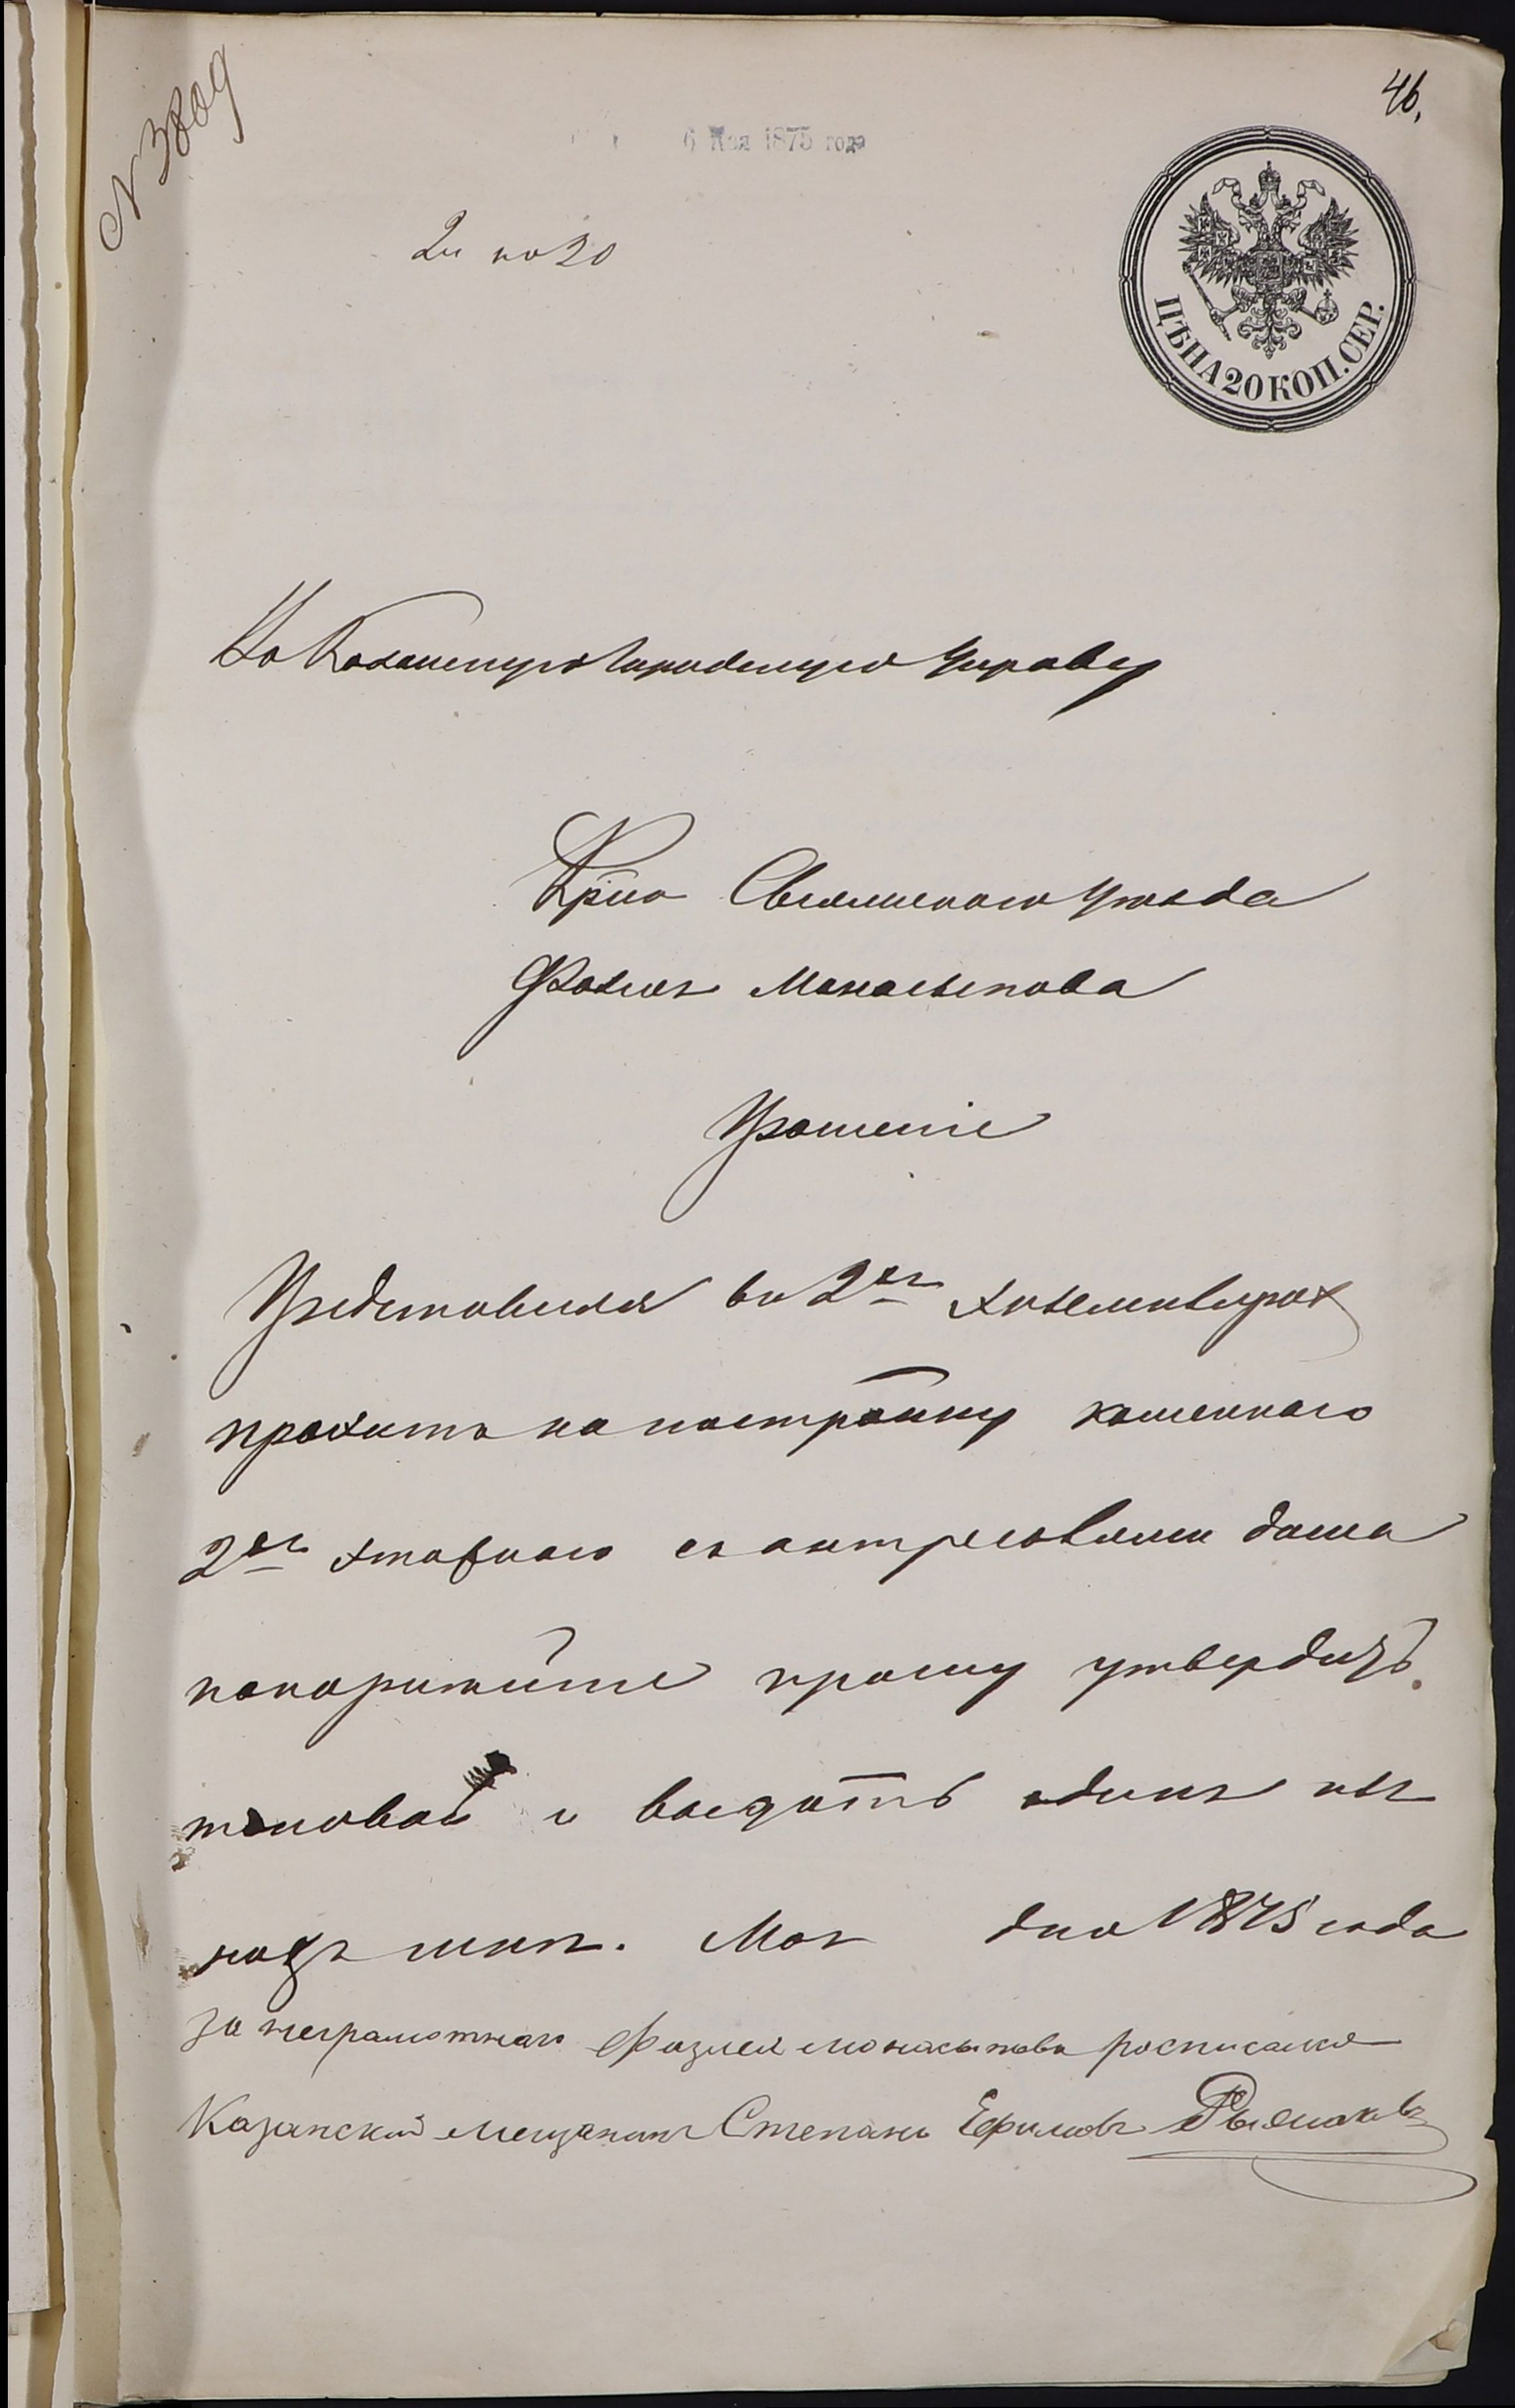 46.
N 3809
6 Мая 1875 года
2 и по 20
ЦѢНА 20 КОП. СЕР.
Въ Казанскую Городскую Управу
Кр̃на Свіяжскаго уѣзда
Фазлея Монасыпова
Прошеніе
Представляя въ 2хъ экземплярах
проэктъ на постройку каменнаго
2хъ этажнаго съ антресолями дома
покорнейше прошу утвердить
таковой и выдать одинъ изъ
нихъ мнѣ. Мая дня 1875 года
За неграмотнаго Фазлея Монасыпова росписался
Казанский мещанинъ Степанъ Ефимовъ